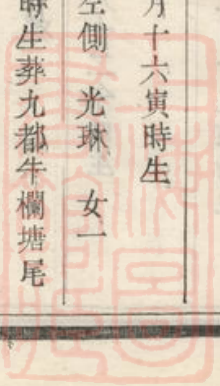 月十六寅時生
左側 光琳 女一
時生葬九都牛欄塘尾